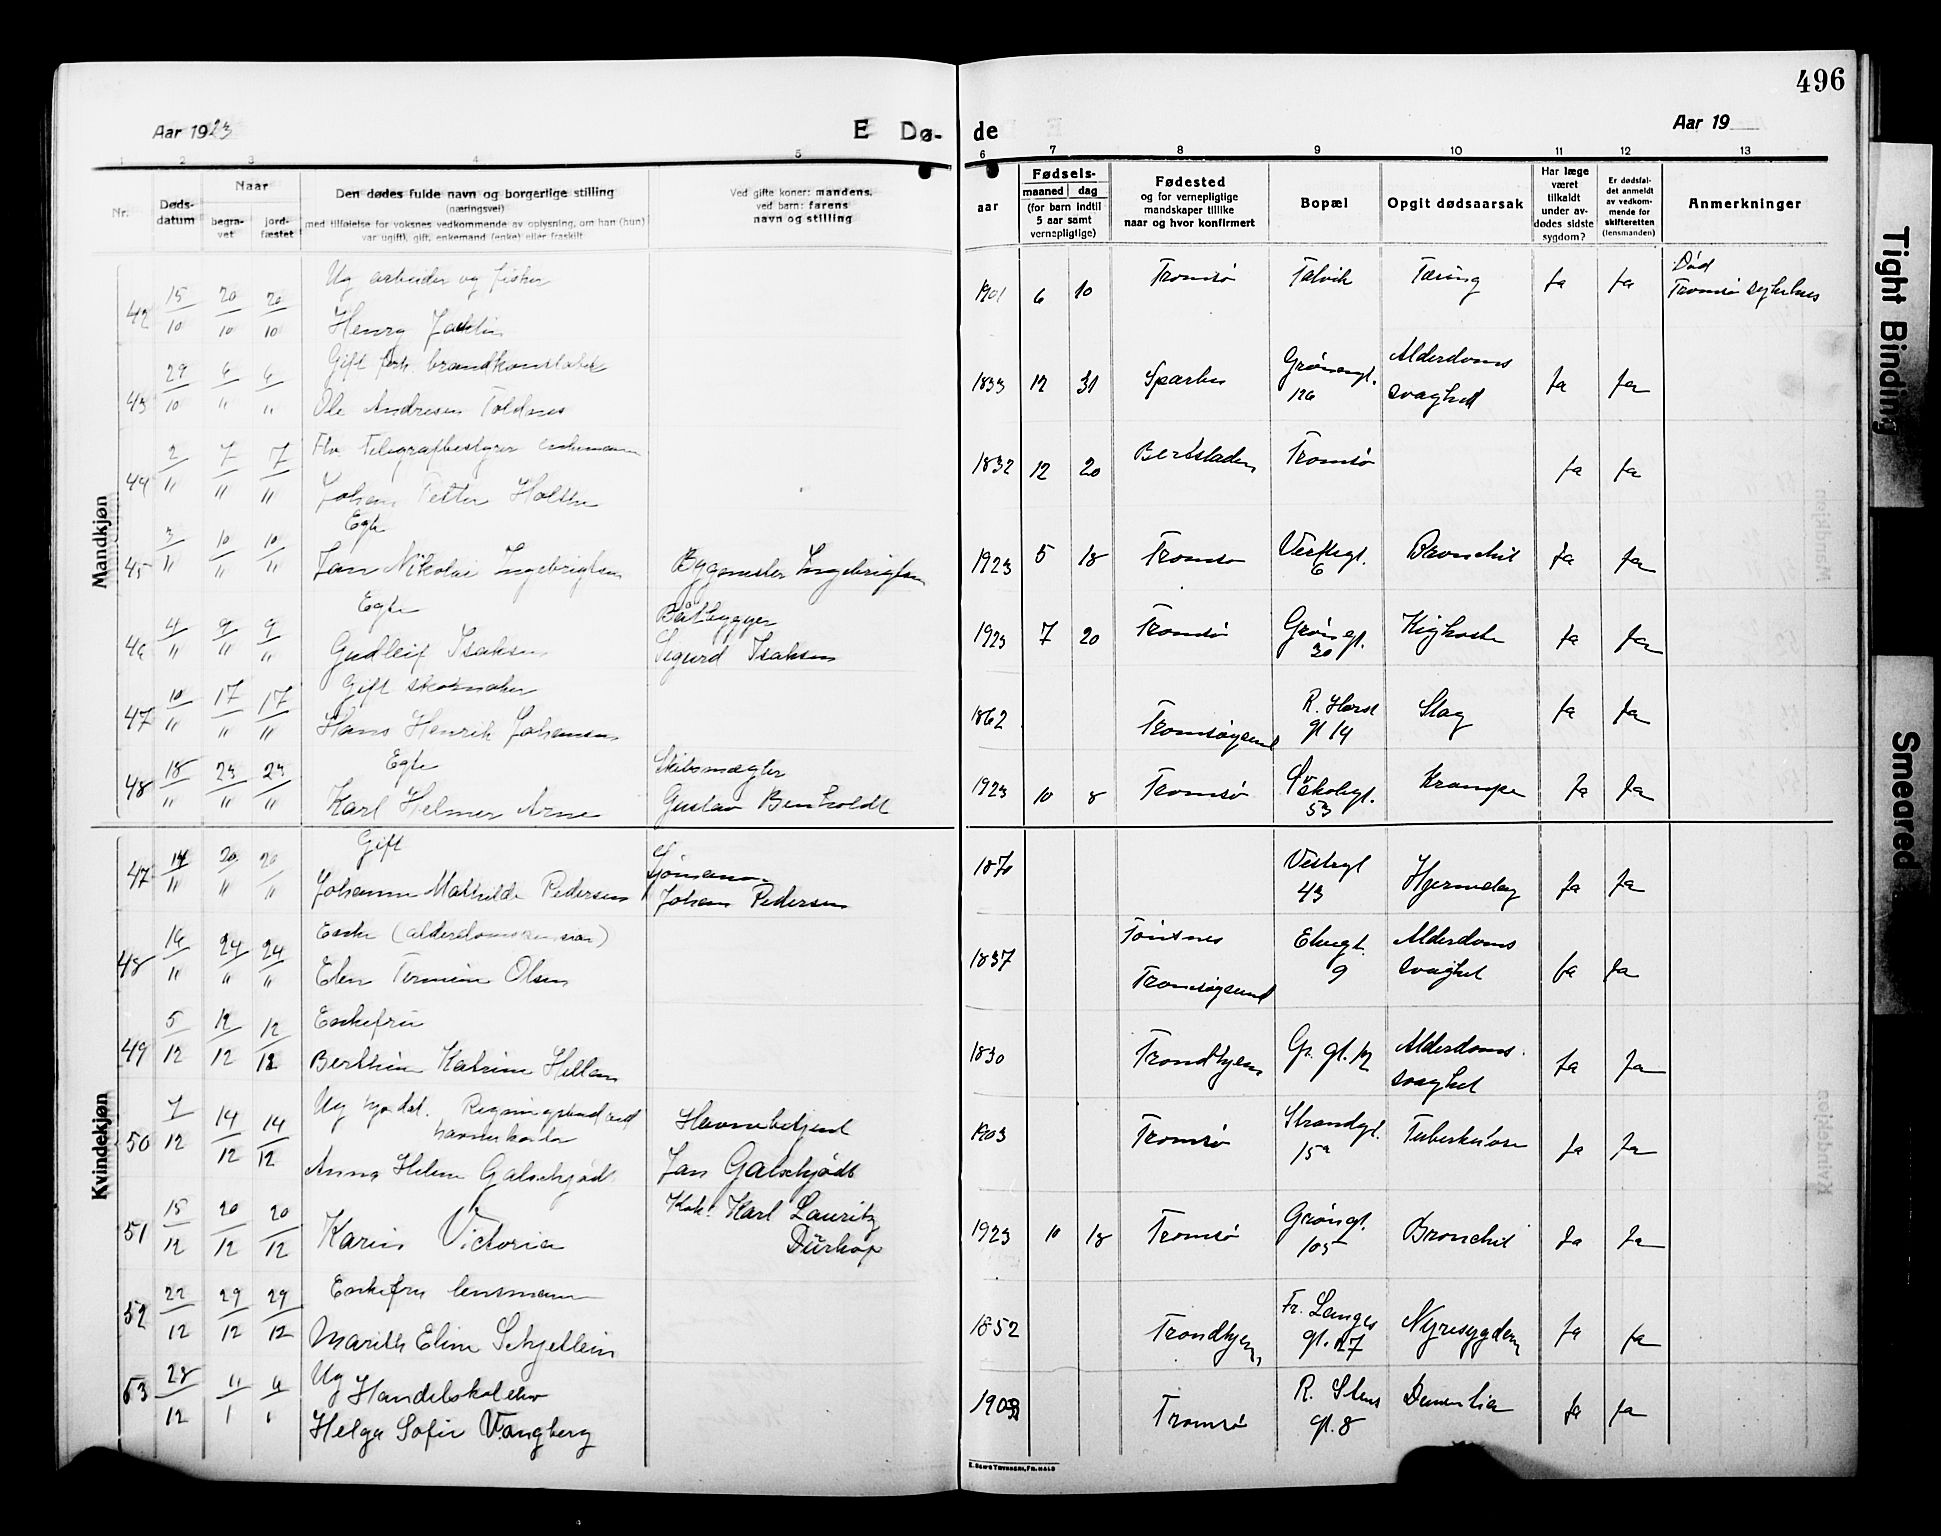 496
Aar 1923
E Dø-
de
Aar 19
1 2 3 4 5 6 7 8 9 10 11 12 13
Nr.
Døds-
datum
Naar
begra-
vet
jord-
fæstet
Den dødes fulde navn og borgerlige stilling
(næringsvei)
med tilføielse for voksnes vedkommende av oplysning, om han (hun)
var ugift, gift, enkemand (enke) eller fraskilt
Ved gifte koner: mandens,
ved barn: farens
navn og stilling
Fødsels-
aar
maaned dag
(for barn indtil
5 aar samt
vernepligtige)
Fødested
og for vernepligtige
mandskaper tillike
naar og hvor konfirmert
Bopæl
Opgit dødsaarsak
Har læge
været
tilkaldt
under av-
dødes sidste
sygdom?
Er dødsfal-
det anmeldt
av vedkom-
mende for
skifteretten
(lensmanden)
Anmerkninger
Mandkjøn
42 15/10 20/10 20/10 Ug arbeider og fisker
Henry
1901 6 10 Tromsø Talvik Tæring Ja Ja Død
Tromsø sykehus
43 29/10 6/11 6/11 Gift brandkonstabel
Ole Andresen Toldnes
1833 12 31 Sparbu Grønnegt.
126 Alderdoms
svaghed Ja Ja
44 2/11 7/11 7/11 Telegrafbestyrer enkemann
Johan Petter
1832 12 20 Tromsø Ja Ja
45 3/11 10/11 10/11 Egte
Jan Nikolai Ingebrigtsen Byggmester Ingebrigtsen
1923 5 18 Tromsø Verftsgt.
6 Bronchit Ja Ja
46 4/11 9/11 9/11 Egte
Gudleif Isaksen Båtbygger
Sigurd Isaksen
1923 7 20 Tromsø Grønegt.
30 Kighoste Ja Ja
47 10/11 17/11 17/11 Gift skomaker
Hans Henrik Johansen
1862 Tromsøysund R. Horst
gt 14 Slag Ja Ja
48 18/11 23/11 23/11 Egte
Karl Helmer Arne Skibsmægler
Gustav Benholdt
1923 10 8 Tromsø Skolegt.
53 Krampe Ja Ja
Kvindekjøn
47 14/11 20/11 20/11 Gift
Johanne Mathilde Pedersen Sjømann
Johan Pedersen
1870 Vestregt
43 Hjerneslag Ja Ja
48 16/11 24/11 24/11 Enke
Elen Olsen
1837 Tønsnes
Tromsøysund Elvegt.
9 Alderdoms
svaghet Ja Ja
49 5/12 12/12 12/12 Enkefru
Berthine Katrine
1830 Trondhjem Gr. gt. 12 Alderdoms-
svaghet Ja Ja
50 7/12 14/12 14/12 Ug
Anna Helene Galschjødt Havnebetjent
Jan Galschjødt
1903 Tromsø Strandgt.
15a Tuberkulose Ja Ja
51 15/12 20/12 20/12 Karin Victoria Kok. Karl Lauritz
Dürkop
1923 10 18 Tromsø Grønegt.
105 Bronchit Ja Ja
52 22/12 29/12 29/12 Enkefru lensmann
Marith Eline Schjetlein
1852 Trondhjem Fr. Langes
gt. 27 Nyresygdom Ja Ja
53 28/12 Ug
Handelsskolelev
Helga Sofie Vangberg
1903 Tromsø R. Stens
gt. 8 Dementia Ja Ja
Mandkjøn
Kvindekjøn
Tight Binding
Smeared